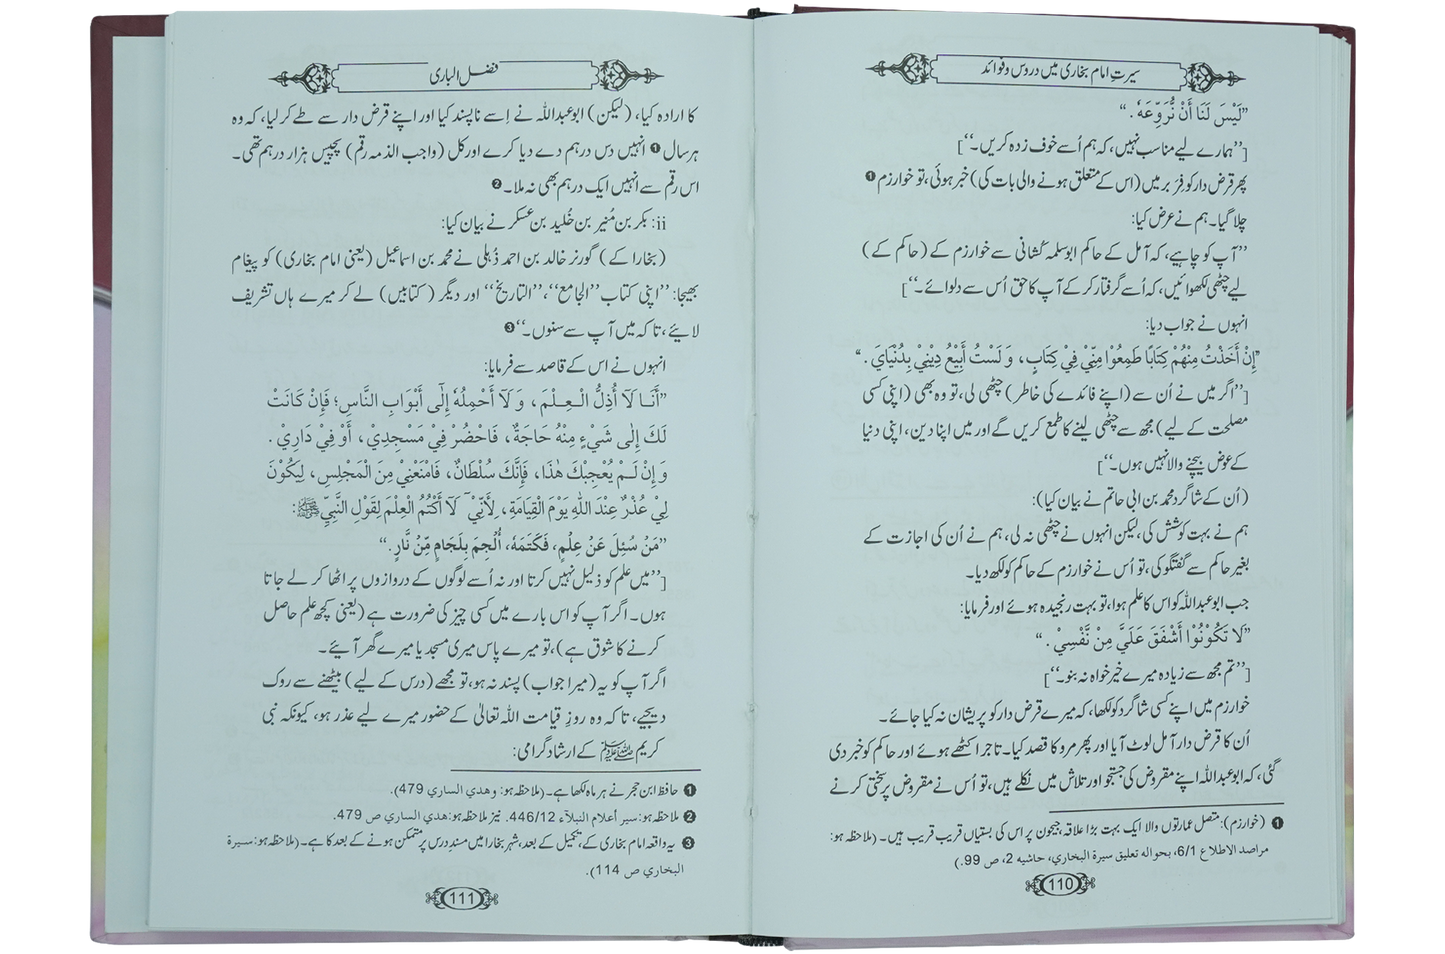 سیرتِ امام بخاری میں دروس و فوائد
”لَيْسَ لَنَا أَنْ نُّرَوِّعَهٗ .“
[’’ہمارے لیے مناسب نہیں، کہ ہم اُسے خوف زدہ کریں۔‘‘]
پھر قرض دار کو فِرَبر میں (اس کے متعلق ہونے والی بات کی) خبر ہوئی، تو خوارزم ❶
چلا گیا۔ ہم نے عرض کیا:
’’آپ کو چاہیے، کہ آمل کے حاکم ابوسلمہ کُشانی سے خوارزم کے (حاکم کے)
لیے چٹھی لکھوائیں، کہ اُسے گرفتار کر کے آپ کا حق اُس سے دلوائے۔‘‘]
انہوں نے جواب دیا:
”إِنْ أَخَذْتُ مِنْهُمْ كِتَابًا طَمِعُوْا مِنِّيْ فِيْ كِتَابٍ، وَ لَسْتُ أَبِيْعُ دِيْنِيْ بِدُنْيَايَ .“
[’’اگر میں نے اُن سے (اپنے فائدے کی خاطر) چٹھی لی، تو وہ بھی (اپنی کسی
مصلحت کے لیے) مجھ سے چٹھی لینے کا طمع کریں گے اور میں اپنا دین، اپنی دنیا
کے عوض بیچنے والا نہیں ہوں۔‘‘]
(اُن کے شاگرد محمد بن ابی حاتم نے بیان کیا):
ہم نے بہت کوشش کی، لیکن انہوں نے چٹھی نہ لی، ہم نے اُن کی اجازت کے
بغیر حاکم سے گفتگو کی، تو اُس نے خوارزم کے حاکم کو لکھ دیا۔
جب ابوعبداللہ کو اس کا علم ہوا، تو بہت رنجیدہ ہوئے اور فرمایا:
”لَا تَكُوْنُوْا أَشْفَقَ عَلَيَّ مِنْ نَّفْسِيْ .“
[’’تم مجھ سے زیادہ میرے خیر خواہ نہ بنو۔‘‘]
خوارزم میں اپنے کسی شاگرد کو لکھا، کہ میرے قرض دار کو پریشان نہ کیا جائے۔
اُن کا قرض دار آمل لوٹ آیا اور پھر مرو کا قصد کیا۔ تاجر اکٹھے ہوئے اور حاکم کو خبر دی
گئی، کہ ابوعبداللہ اپنے مقروض کی جستجو اور تلاش میں نکلے ہیں، تو اُس نے مقروض پر سختی کرنے
❶ (خوارزم): متصل عمارتوں والا ایک بہت بڑا علاقہ، جیحون پر اس کی بستیاں قریب قریب ہیں۔ (ملاحظہ ہو:
مراصد الاطلاع 6/1، بحوالہ تعلیق سیرۃ البخاري، حاشیہ 2، ص 99.)
110
فضل الباری
کا ارادہ کیا، (لیکن) ابوعبداللہ نے اِسے ناپسند کیا اور اپنے قرض دار سے طے کر لیا، کہ وہ
ہر سال ❶ انہیں دس درہم دے دیا کرے اور کل (واجب الذمہ رقم) پچیس ہزار درہم تھی۔
اس رقم سے انہیں ایک درہم بھی نہ ملا۔ ❷
ii: بکر بن مُنیر بن خُلید بن عسکر نے بیان کیا:
(بخارا کے) گورنر خالد بن احمد ذُہلی نے محمد بن اسماعیل (یعنی امام بخاری) کو پیغام
بھیجا: ’’اپنی کتاب ’’الجامع‘‘، ’’التاریخ‘‘ اور دیگر (کتابیں) لے کر میرے ہاں تشریف
لایئے، تاکہ میں آپ سے سنوں۔‘‘ ❸
انہوں نے اس کے قاصد سے فرمایا:
”أَنَا لَا أُذِلُّ الْعِلْمَ، وَ لَا أَحْمِلُهٗ إِلٰٓى أَبْوَابِ النَّاسِ؛ فَإِنْ كَانَتْ
لَكَ إِلٰى شَيْءٍ مِنْهُ حَاجَةٌ، فَاحْضُرْ فِيْ مَسْجِدِيْ، أَوْ فِيْ دَارِيْ.
وَ إِنْ لَمْ يُعْجِبْكَ هٰذَا، فَإِنَّكَ سُلْطَانٌ، فَامْنَعْنِيْ مِنَ الْمَجْلِسِ، لِيَكُوْنَ
لِيْ عُذْرٌ عِنْدَ اللهِ يَوْمَ الْقِيَامَةِ، لِأَنِّيْ لَآ أَكْتُمُ الْعِلْمَ لِقَوْلِ النَّبِيِّ ﷺ:
”مَنْ سُئِلَ عَنْ عِلْمٍ، فَكَتَمَهٗ، أُلْجِمَ بِلَجَامٍ مِّنْ نَّارٍ.“
[’’میں علم کو ذلیل نہیں کرتا اور نہ اُسے لوگوں کے دروازوں پر اٹھا کر لے جاتا
ہوں۔ اگر آپ کو اس بارے میں کسی چیز کی ضرورت ہے (یعنی کچھ علم حاصل
کرنے کا شوق ہے)، تو میرے پاس میری مسجد یا میرے گھر آیئے۔
اگر آپ کو یہ (میرا جواب) پسند نہ ہو، تو مجھے (درس کے لیے) بیٹھنے سے روک
دیجیے، تاکہ وہ روزِ قیامت اللہ تعالیٰ کے حضور میرے لیے عذر ہو، کیونکہ نبی
کریم ﷺ کے ارشاد گرامی:
❶ حافظ ابن حجر نے ہر ماہ لکھا ہے۔ (ملاحظہ ہو: وهدي الساري 479).
❷ ملاحظہ ہو: سير أعلام النبلآء 446/12. نیز ملاحظہ ہو: هدي الساري ص 479.
❸ یہ واقعہ امام بخاری کے، تکمیل کے بعد، شہر بخارا میں مسندِ درس پر متمکن ہونے کے بعد کا ہے۔ (ملاحظہ ہو: سيرة
البخاري ص 114).
111